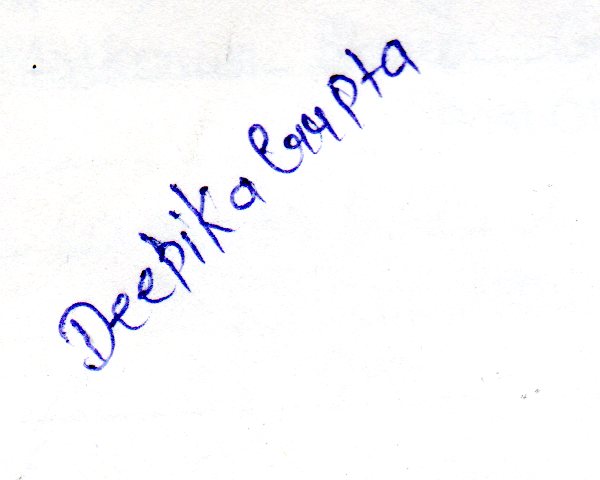 Deepika Gupta